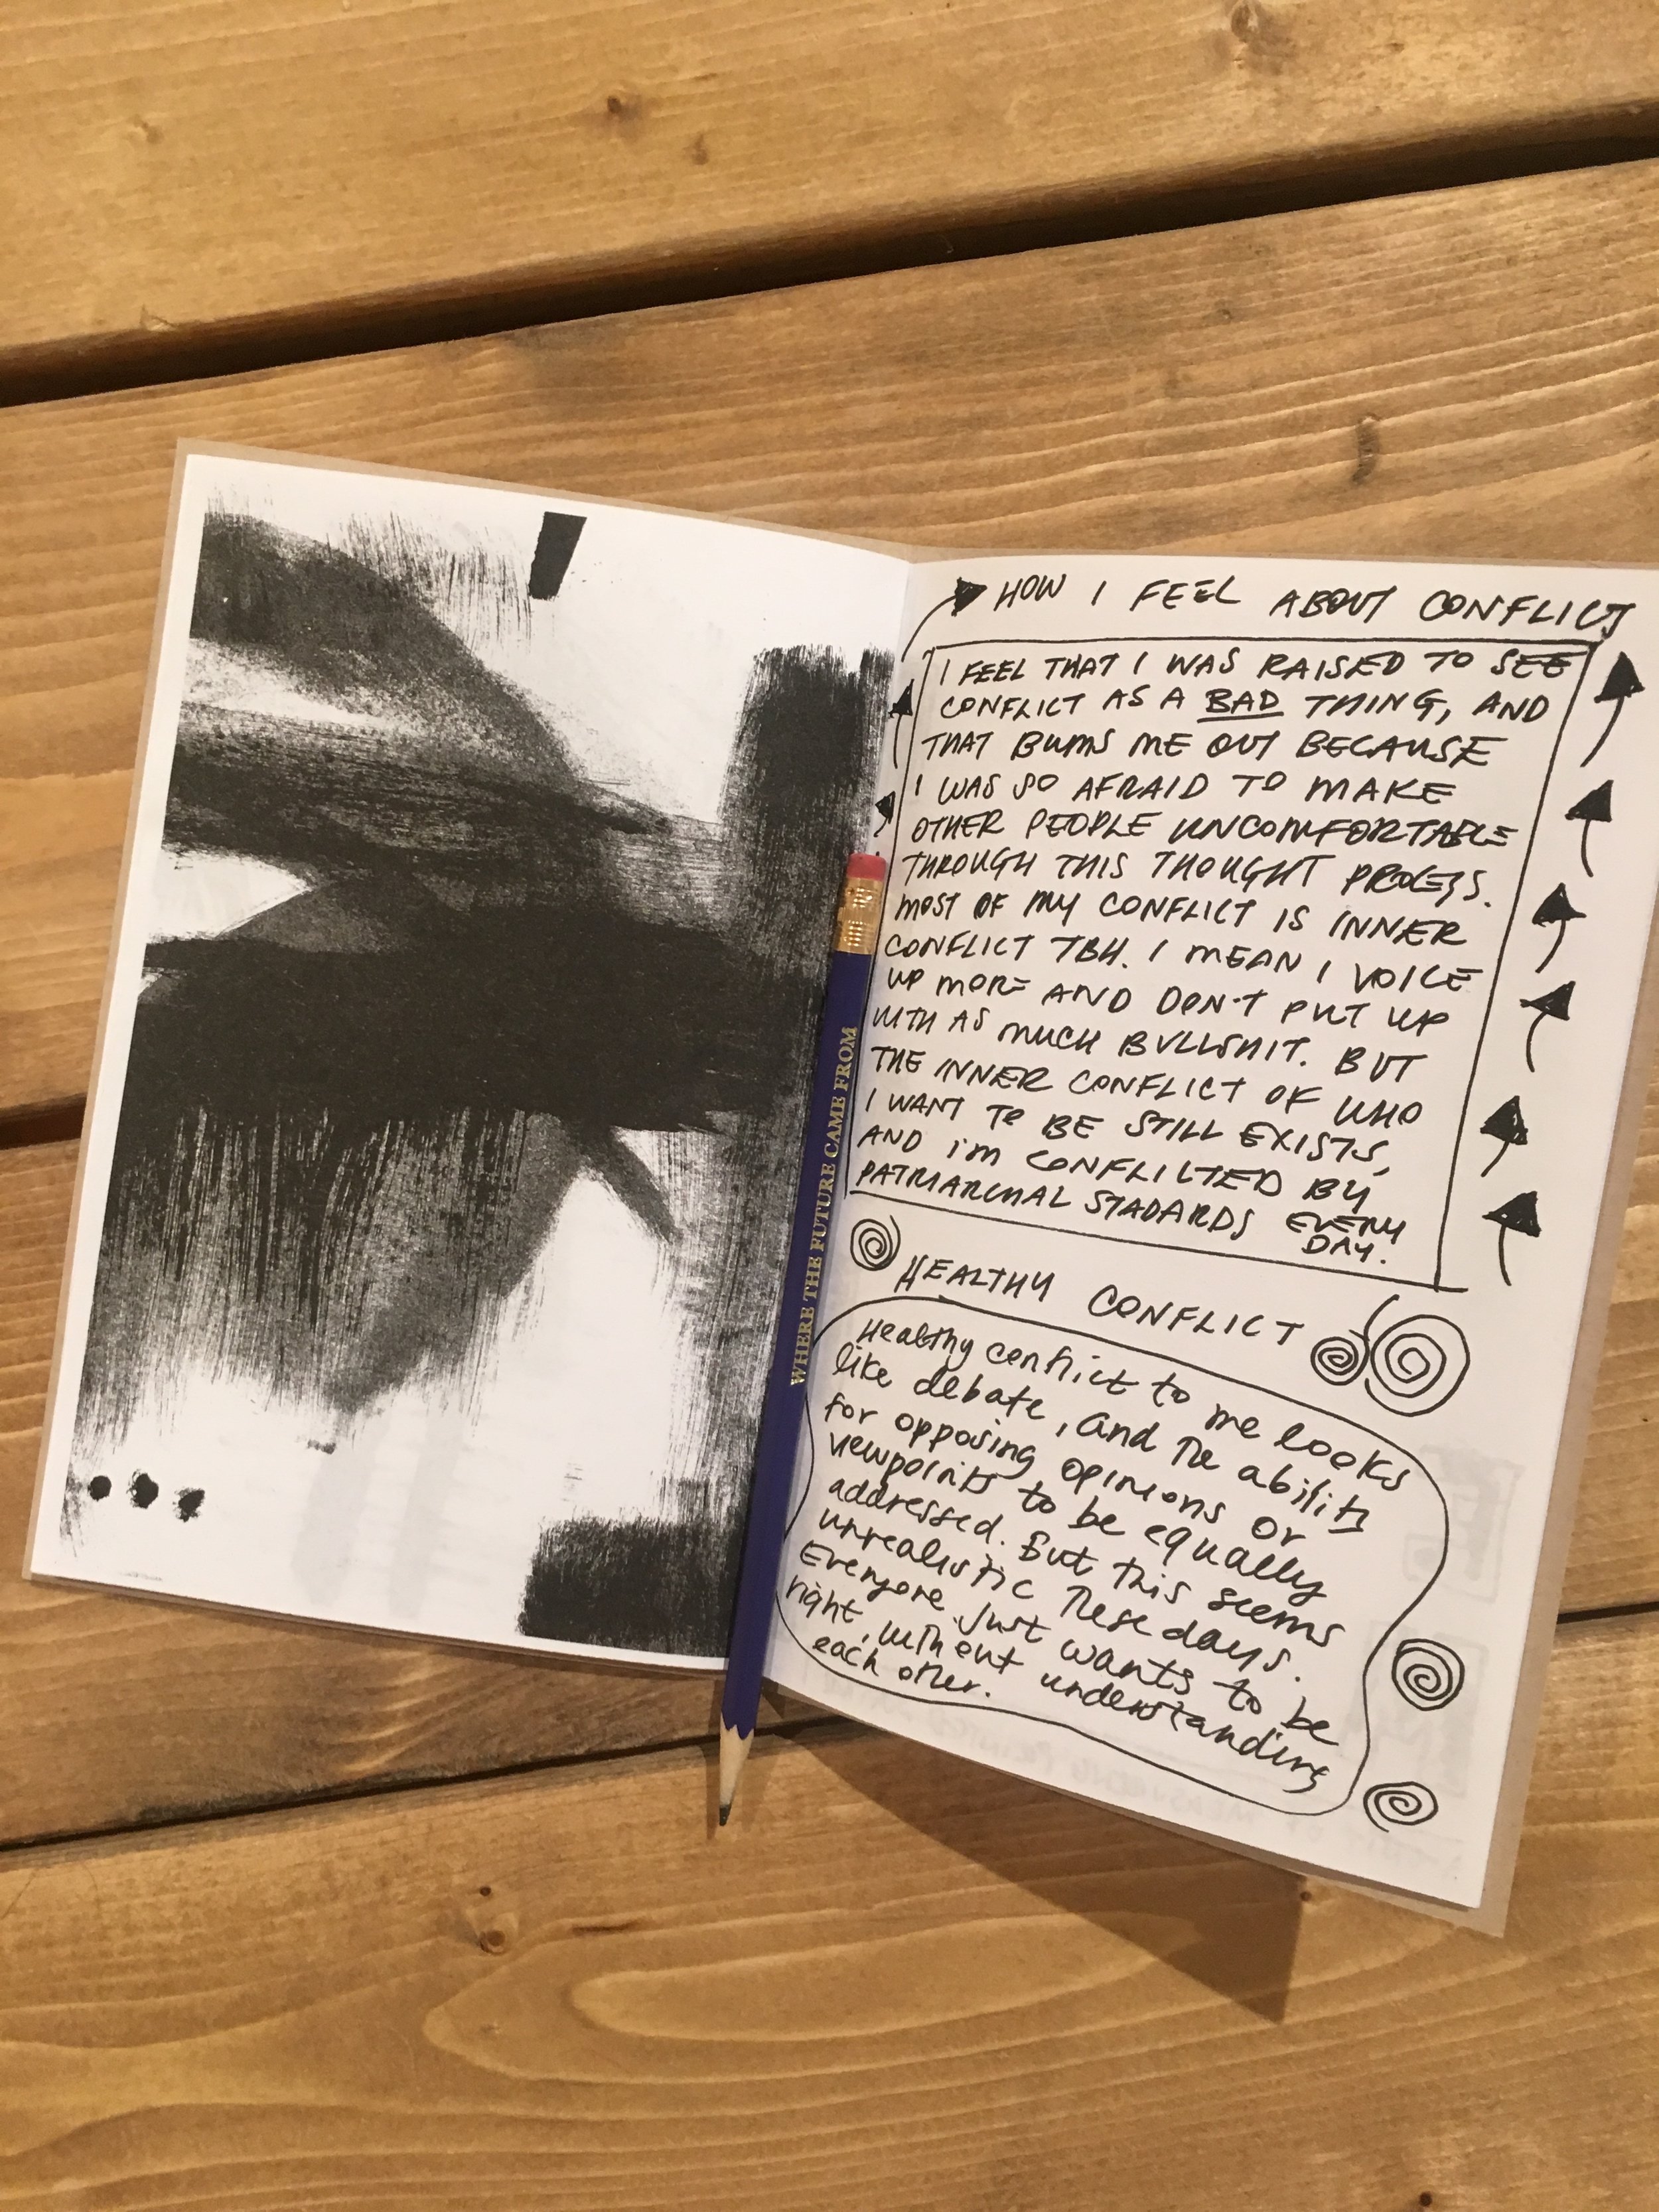 HOW I FEEL ABOUT CONFLICT
I FEEL THAT I WAS RAISED TO SEE
CONFLICT AS A BAD THING, AND
THAT BUMS ME OUT BECAUSE
I WAS SO AFRAID TO MAKE
OTHER PEOPLE UNCOMFORTABLE
THROUGH THIS THOUGHT PROCESS.
MOST OF MY CONFLICT IS INNER
CONFLICT TBH. I MEAN I VOICE
UP MORE AND DON'T PUT UP
WITH AS MUCH BULLSHIT. BUT
THE INNER CONFLICT OF WHO
I WANT TO BE STILL EXISTS,
AND I'M CONFLICTED BY
PATRIARCHAL STADARDS EVERY
DAY.
HEALTHY CONFLICT
Healthy conflict to me looks
like debate, and the ability
for opposing opinions or
viewpoints to be equally
addressed. But this seems
unrealistic these days.
Everyone just wants to be
right, without understanding
each other.
WHERE THE FUTURE CAME FROM